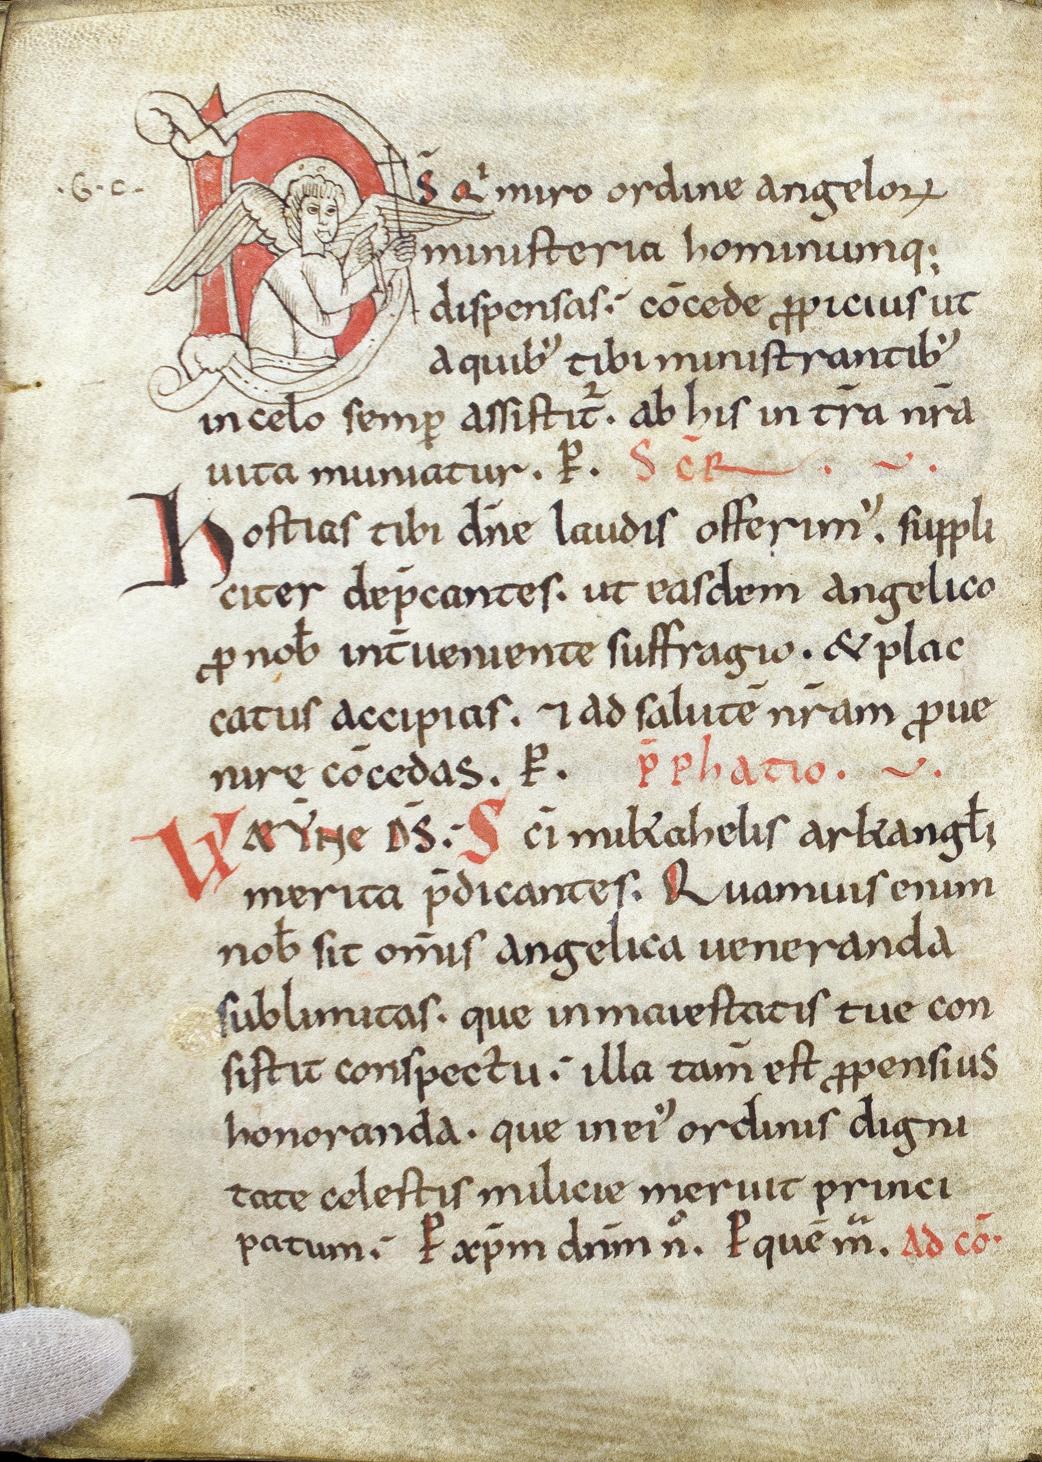 ·G·C·
DS̄ Qⁱ miro ordine angeloꝝ
ministeria hominumq;
dispensas· cōcede ꝓpicius ut
a quibꝰ tibi ministrantibꝰ
in celo semꝑ assistit᷑· ab his in tr̄a nr̄a
uita muniatur. P. SECR̄
Hostias tibi dn̄e laudis offerimꝰ. suppli
citer dep̄cantes. ut easdem angelico
ꝓ nob̄ int̄ueniente suffragio. & plac
catus accipias. ⁊ ad salutē nr̄am ꝓue
nire cōcedas. P. P̄Phatio.
VÆT̄Ne DS̄. Sc̄i mikahelis arkangl̄i
merita p̄dicantes. Quamuis enim
nob̄ sit om̄is angelica ueneranda
sublimitas· que in maiestatis tue con
sistit conspectu· illa tam̄ est ꝓpensius
honoranda· que in eiꝰ ordinis digni
tate celestis milicie meruit princi
patum· P xp̄m dn̄m nͦ. P quē m̄. AD CŌ·